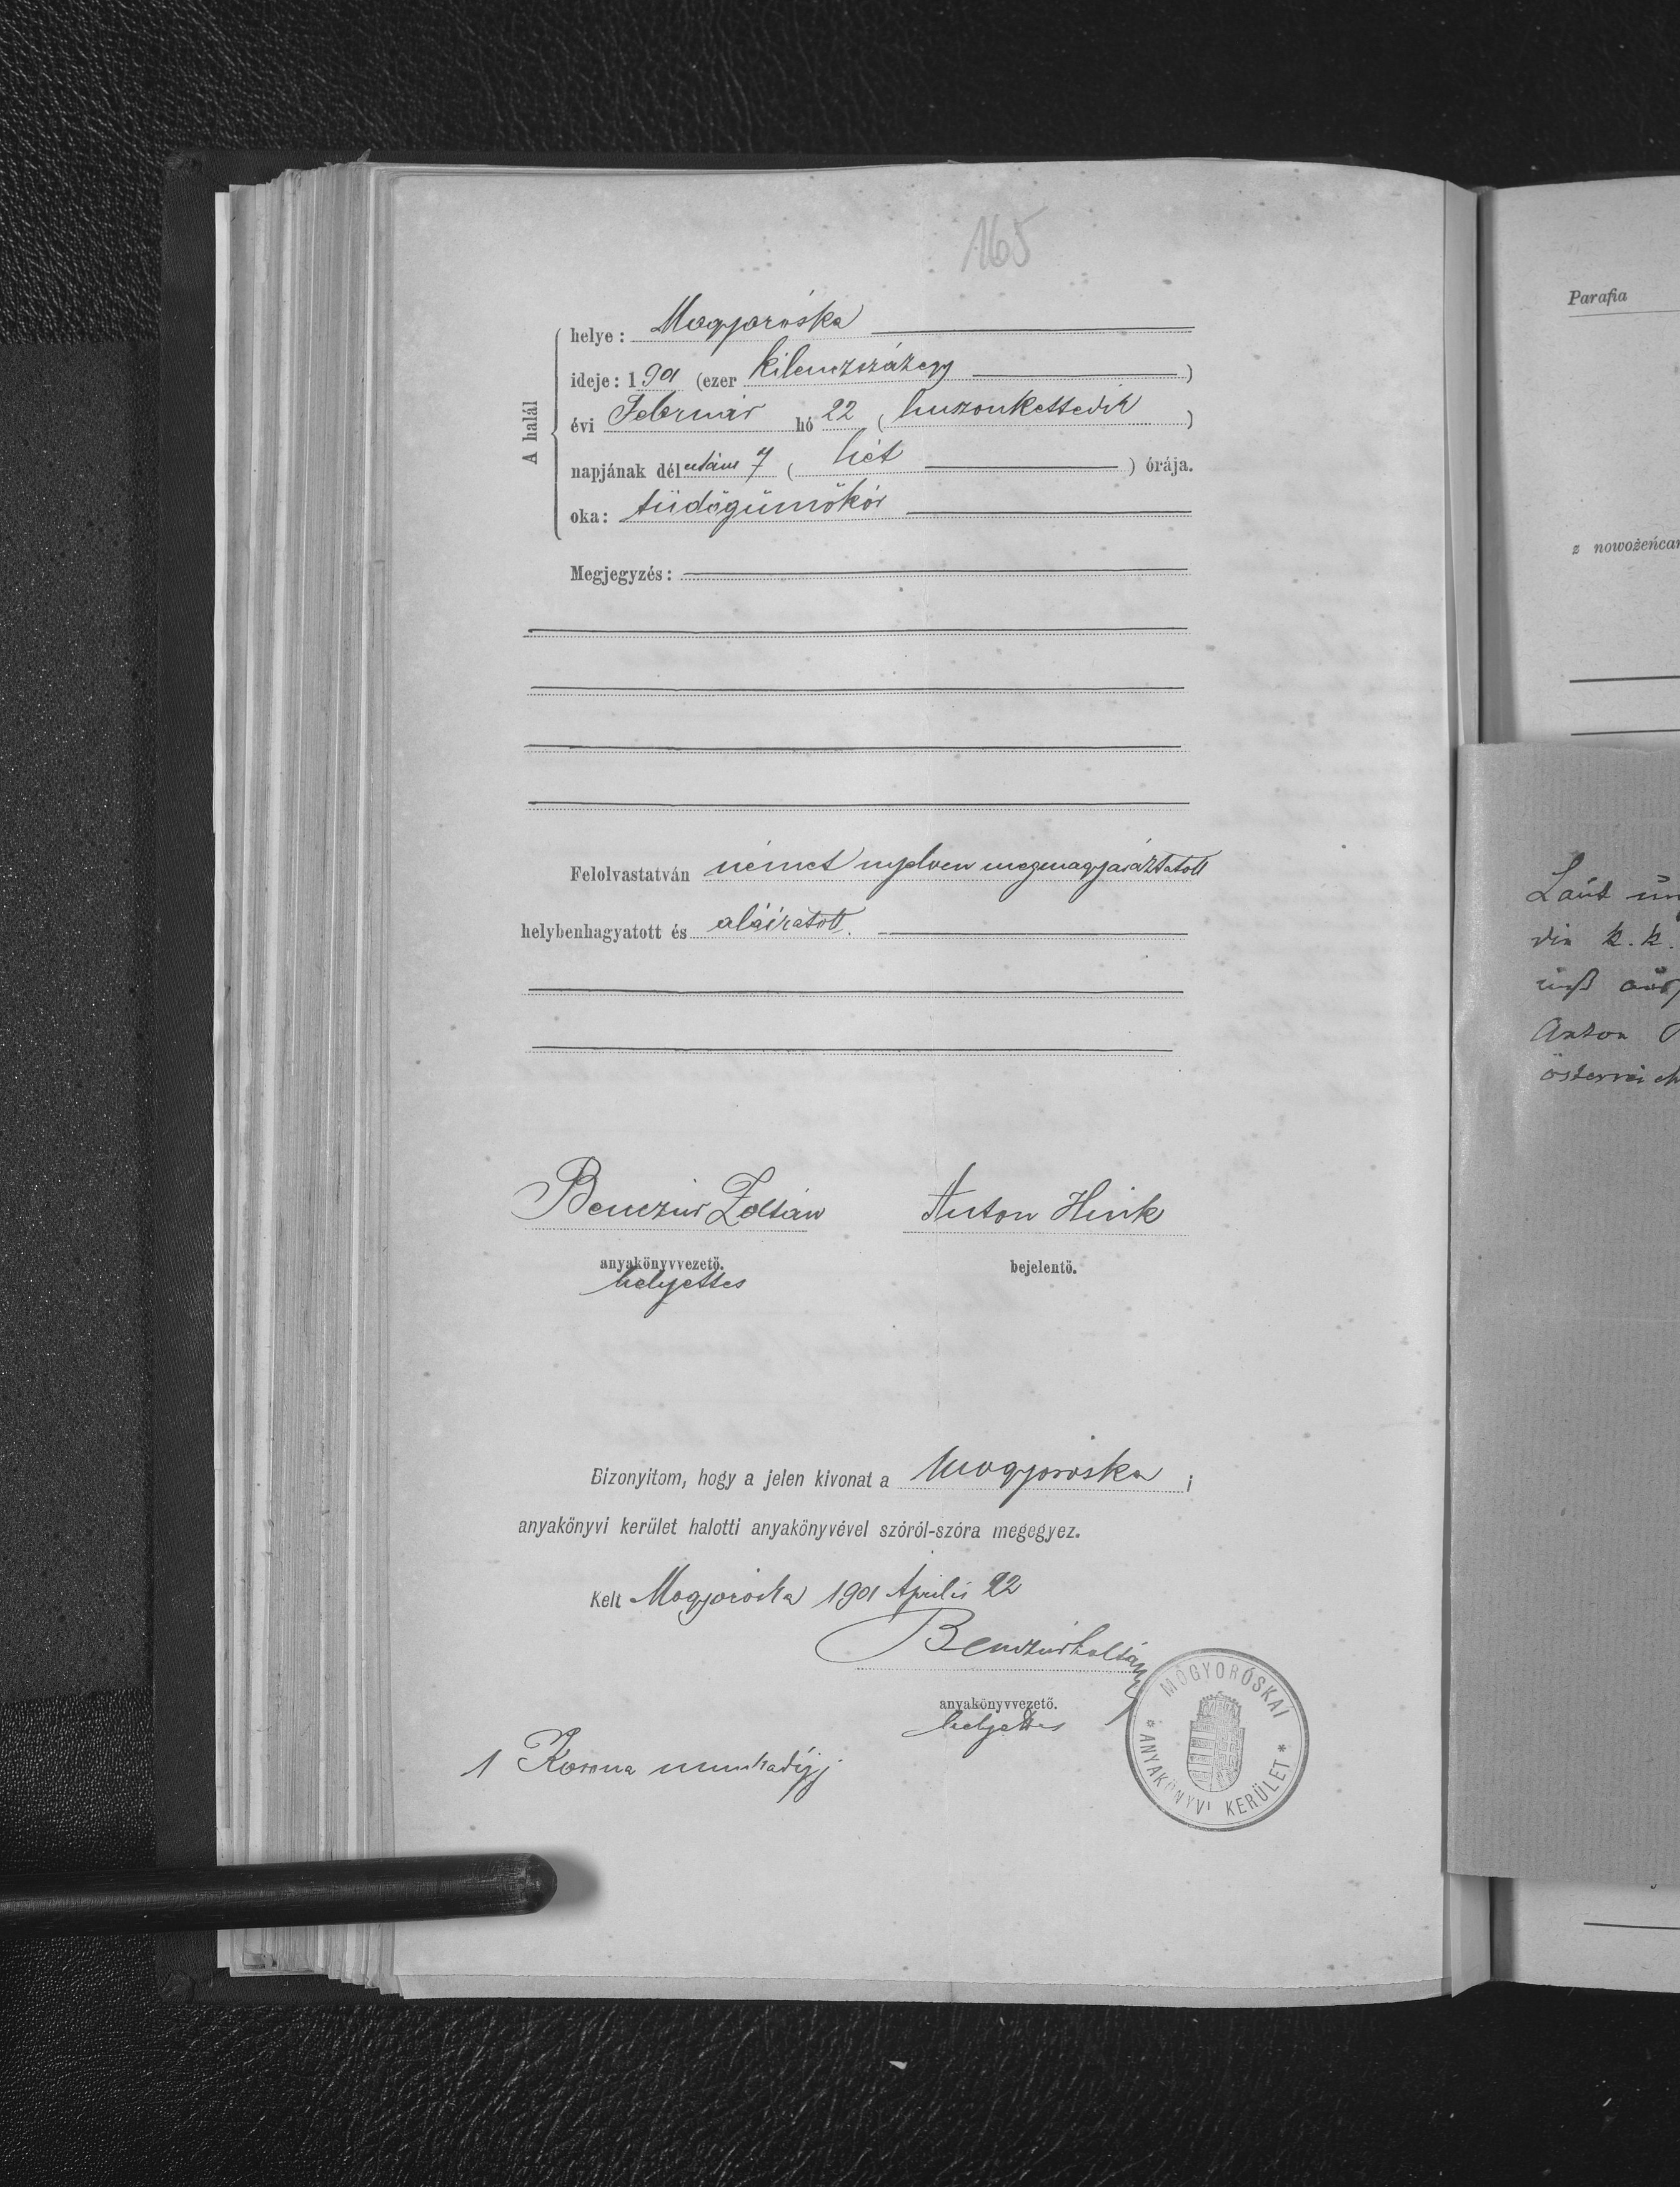 165
A halál
helye: Mogyoróska
ideje: 1901 (ezer kilenczszázegy)
évi Február hó 22 (huszonkettedik)
napjának délután 7 (hét) órája.
oka: tüdőgümőkór
Megjegyzés:
Felolvastatván német nyelven megmagyaráztatott
helybenhagyatott és aláiratott.
Benczúr Zoltán Anton Hink
anyakönyvvezető. bejelentő.
helyettes
Bizonyitom, hogy a jelen kivonat a Mogyoróska i
anyakönyvi kerület halotti anyakönyvével szóról-szóra megegyez.
Kelt Mogyoróska 1901 Április 22
Benczúr Zoltán
anyakönyvvezető.
helyettes
MOGYORÓSKAI
* ANYAKÖNYVI KERÜLET *
1 Korona munkadíj
Parafia
z nowożeńcam
Laut
die k. k.
Anton
österreich